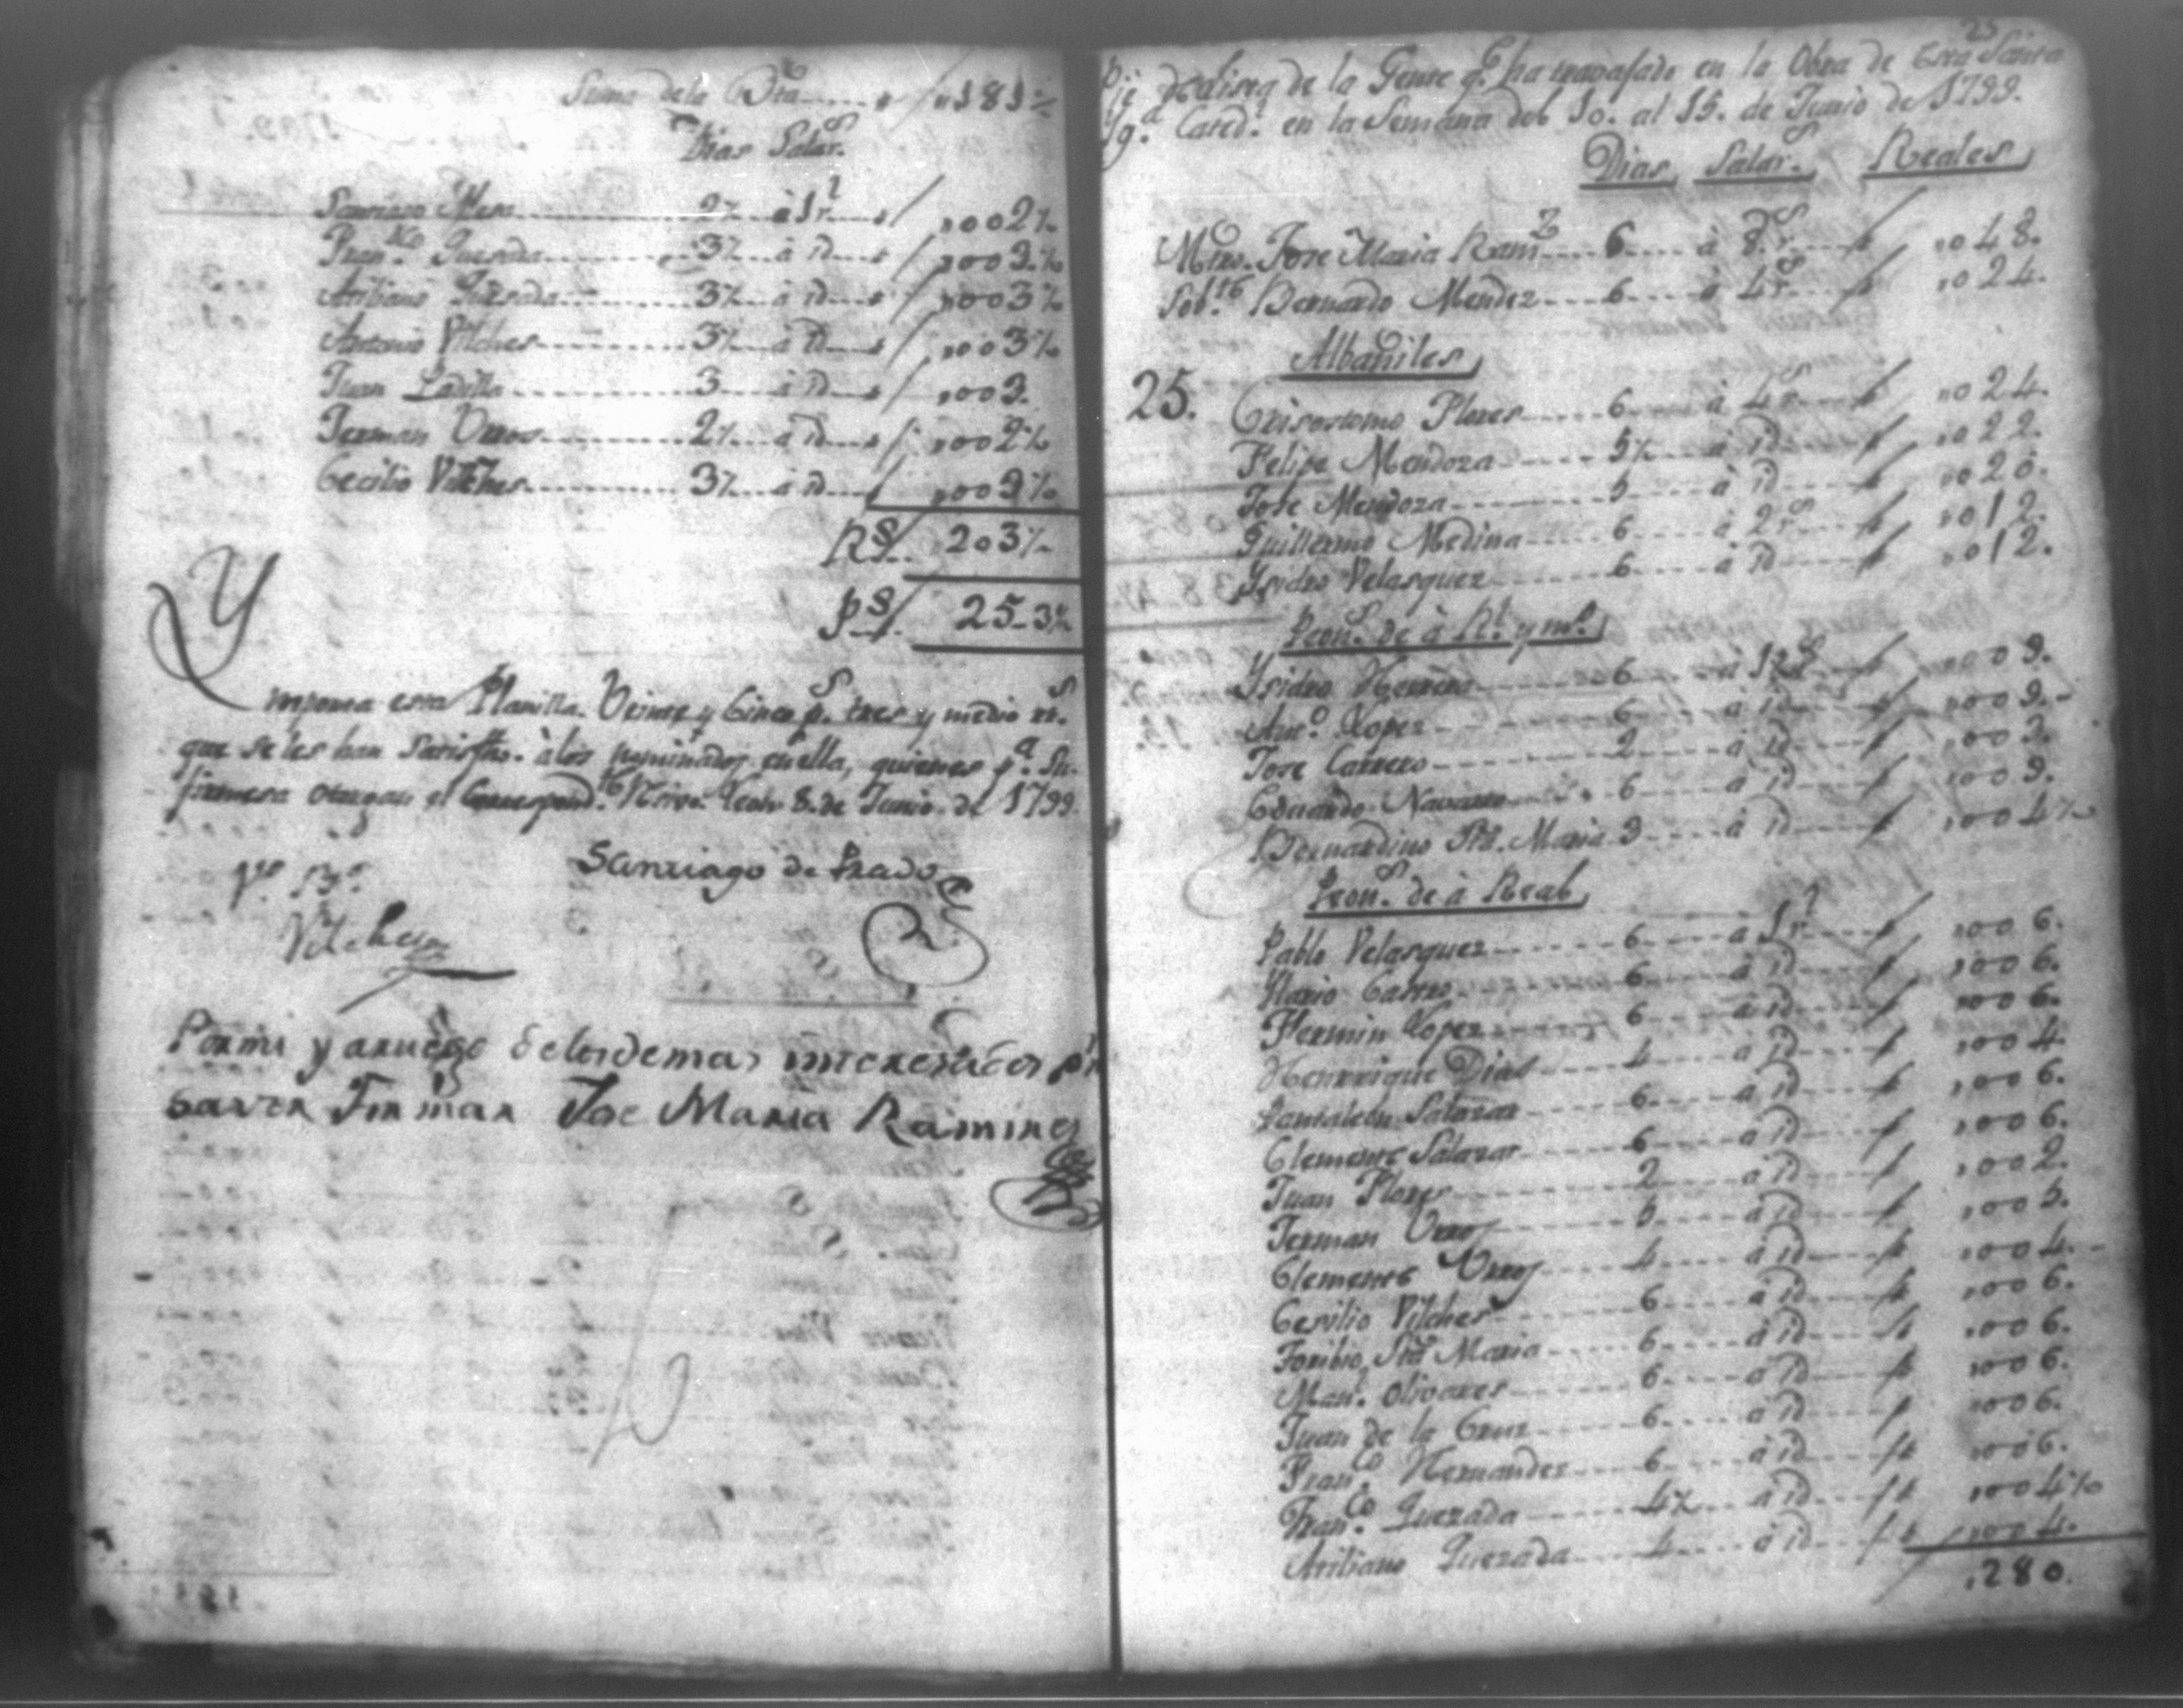 Suma de la Bta..... ,,181½
Dias Salar.s
Santiago Mesa 2½ à 1 r.l ,,002½
Fran.co Quesada 3½ à id ,,003½
Quesada 3½ à id ,,003½
Antonio Vilches 3½ à id ,,003½
Juan Padilla 3 à id ,,003.
Jerman Urros 2½ à id ,,002½
Cecilio Vilches 3½ à id ,,003½
R.s 203½
P.s 25-3½
Ymporta esta Planilla Veinte y Cinco p.s tres y medio r.s
que se les han satisfho. à los nominados en ella, quienes p.a su
firmesa otorgan el Correspond.te Leon 8. de Junio de 1799
V.o B.o Santiago de Prado
Vilches
Por mi y a ruego de los demas interesados p.r no
saver Firmar Jose Maria Ramires
25
de la Gente q.e ha travajado en la Obra de Esta Santa
Yg.a Cated.l en la Semana del 10. al 15. de Junio de 1799.
Dias Salar.s Reales
Mtro. Jose Maria Ram.z 6 à 8 r.s ,,048.
Sob.te Bernardo Mendez 6 à 4 r.s ,,024.
Albañiles
25. Crisostomo Flores 6 à 4 r.s ,,024.
Felipe Mendoza 5½ à id ,,022.
Jose Mendoza 5 à id ,,020.
Guillermo Medina 6 à 2 r.s ,,012.
Ysidro Velasquez 6 à id ,,012.
Peon.s de à R.l y m.o
Ysidro Herrera 6 à 1½ r.s ,,009.
Ant.o Lopez 6 à id ,,009.
Jose Carrero 2 à id ,,003.
Eduardo Navarro 6 à id ,,009.
Bernardino Sta. Maria 3 à id ,,004½
Peon.s de à Real
Pablo Velasquez 6 à 1 r.l ,,006.
Castro 6 à id ,,006.
Fermin Lopez 6 à id ,,006.
Henrrique Dias 4 à id ,,004.
Pantaleon Salazar 6 à id ,,006.
Clemente Salazar 6 à id ,,006.
Juan Flores 2 à id ,,002.
Jerman Urros 5 à id ,,005.
Clemente Urros 4 à id ,,004.
Cesilio Vilches 6 à id ,,006.
Toribio Sta Maria 6 à id ,,006.
Man.l Olivares 6 à id ,,006.
Juan de la Cruz 6 à id ,,006.
Fran.co Hernandez 6 à id ,,006.
Fran.co Quezada 4½ à id ,,004½
Quezada 4 à id ,,004.
,280.